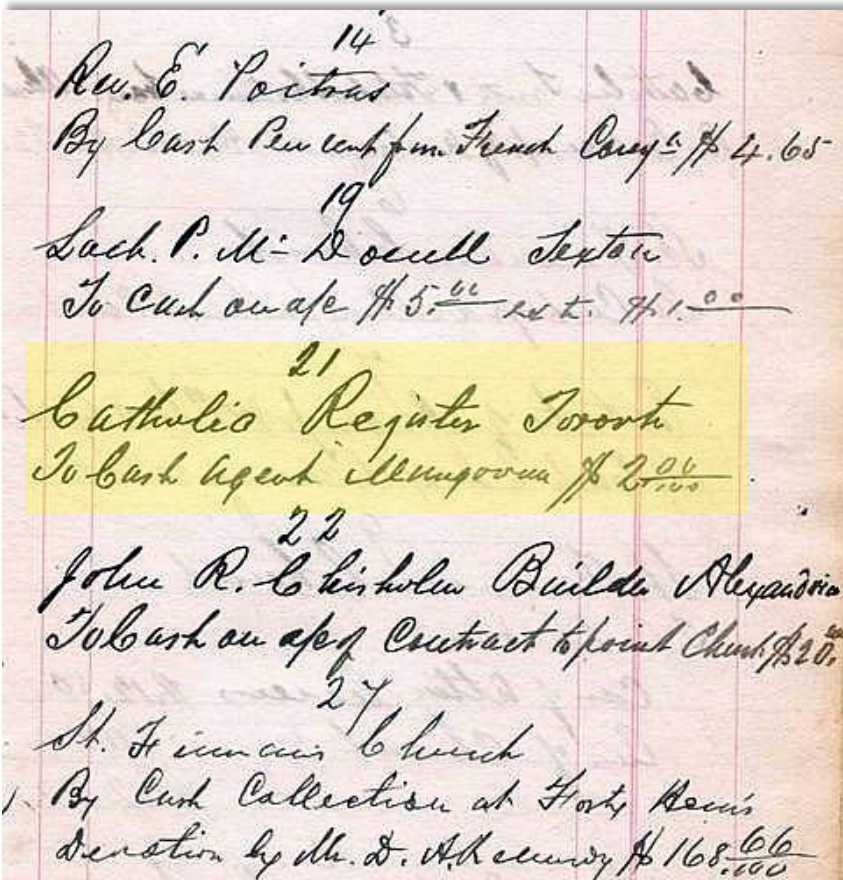 14
Rev. E. Poitras
By Cash Per cent from French Congn $4.65
19
Lach. P. Mc Donell Sexton
To Cash on a/c $5.00 ext. $1.00
21
Catholic Register Toronto
To Cash Agent Mungovan $2.00/100
22
John R. Chisholm Builder Alexandria
To Cash on a/c of Contract to point Church $20.00
27
St. Finnans Church
By Cash Collection at Forty Hours
Devotion by Mr. D. A. Kennedy $168.66/100